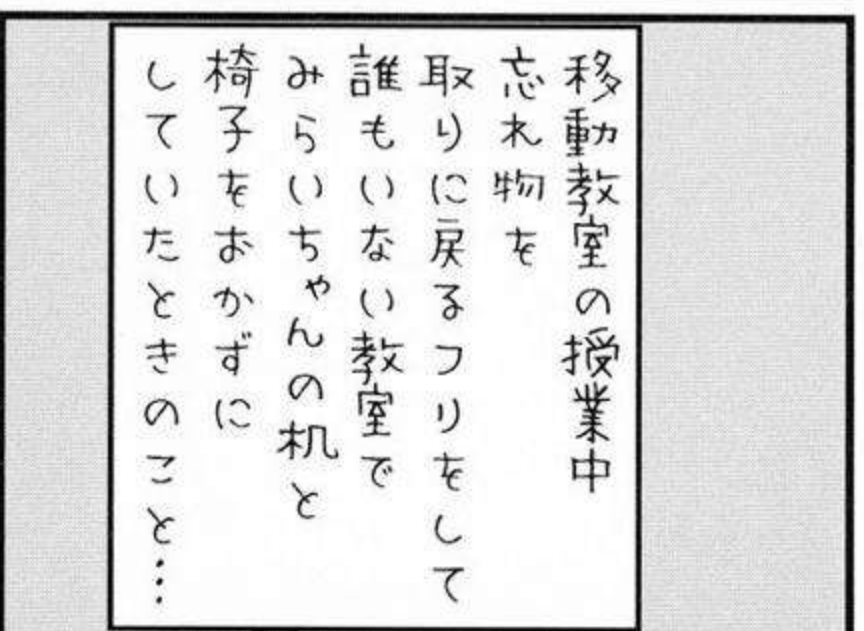 移動教室の授業中
忘れ物を
取りに戻るフリをして
誰もいない教室で
みらいちゃんの机と
椅子をおかずに
していたときのこと…